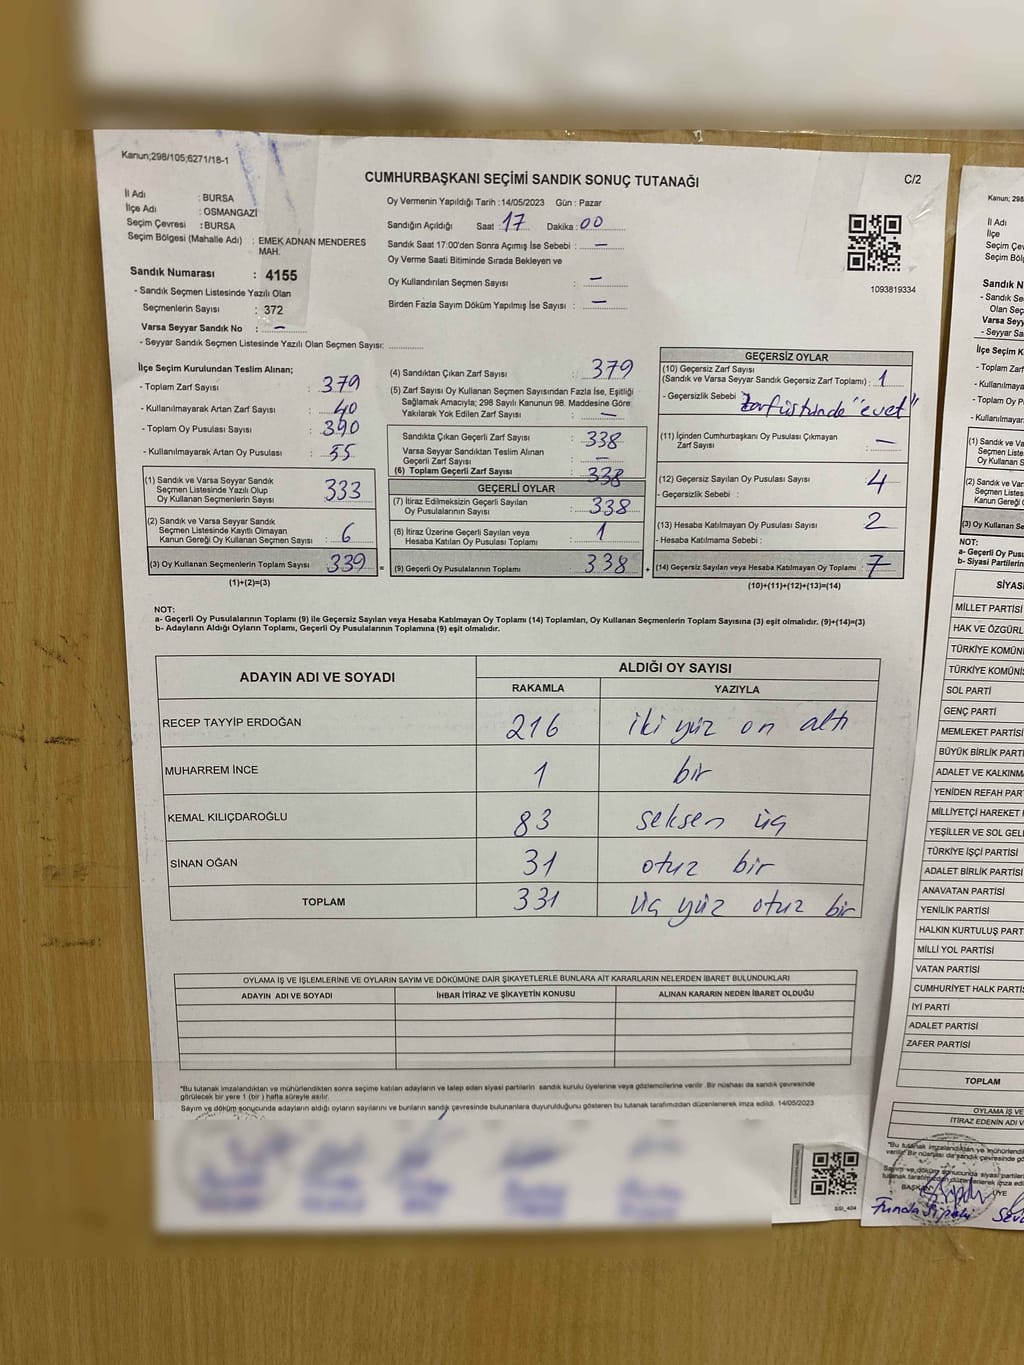 Kanun;298/105;6271/18-1
CUMHURBAŞKANI SEÇİMİ SANDIK SONUÇ TUTANAĞI
C/2
İl Adı : BURSA
İlçe Adı : OSMANGAZİ
Seçim Çevresi : BURSA
Seçim Bölgesi (Mahalle Adı) : EMEK ADNAN MENDERES
MAH.
Sandık Numarası : 4155
- Sandık Seçmen Listesinde Yazılı Olan
Seçmenlerin Sayısı : 372
Varsa Seyyar Sandık No : —
- Seyyar Sandık Seçmen Listesinde Yazılı Olan Seçmen Sayısı:
Oy Vermenin Yapıldığı Tarih :14/05/2023 Gün : Pazar
Sandığın Açıldığı Saat : 17 Dakika : 00
Sandık Saat 17:00'den Sonra Açımış İse Sebebi : —
Oy Verme Saati Bitiminde Sırada Bekleyen ve
Oy Kullandırılan Seçmen Sayısı : —
Birden Fazla Sayım Döküm Yapılmış İse Sayısı : —
1093819334
İlçe Seçim Kurulundan Teslim Alınan;
- Toplam Zarf Sayısı : 379
- Kullanılmayarak Artan Zarf Sayısı : 40
- Toplam Oy Pusulası Sayısı : 390
- Kullanılmayarak Artan Oy Pusulası : 55
(1) Sandık ve Varsa Seyyar Sandık
Seçmen Listesinde Yazılı Olup
Oy Kullanan Seçmenlerin Sayısı 333
(2) Sandık ve Varsa Seyyar Sandık
Seçmen Listesinde Kayıtlı Olmayan
Kanun Gereği Oy Kullanan Seçmen Sayısı : 6
(3) Oy Kullanan Seçmenlerin Toplam Sayısı 339 =
(1)+(2)=(3)
(4) Sandıktan Çıkan Zarf Sayısı : 379
(5) Zarf Sayısı Oy Kullanan Seçmen Sayısından Fazla İse, Eşitliği
Sağlamak Amacıyla; 298 Sayılı Kanunun 98. Maddesine Göre
Yakılarak Yok Edilen Zarf Sayısı : —
Sandıkta Çıkan Geçerli Zarf Sayısı : 338
Varsa Seyyar Sandıktan Teslim Alınan
Geçerli Zarf Sayısı : —
(6) Toplam Geçerli Zarf Sayısı : 338
GEÇERLİ OYLAR
(7) İtiraz Edilmeksizin Geçerli Sayılan
Oy Pusulalarının Sayısı : 338
(8) İtiraz Üzerine Geçerli Sayılan veya
Hesaba Katılan Oy Pusulası Toplamı : 1
(9) Geçerli Oy Pusulalarının Toplamı : 338 +
GEÇERSİZ OYLAR
(10) Geçersiz Zarf Sayısı
(Sandık ve Varsa Seyyar Sandık Geçersiz Zarf Toplamı) : 1
- Geçersizlik Sebebi : zarf üstünde "evet"
(11) İçinden Cumhurbaşkanı Oy Pusulası Çıkmayan
Zarf Sayısı : —
(12) Geçersiz Sayılan Oy Pusulası Sayısı : 4
- Geçersizlik Sebebi :
(13) Hesaba Katılmayan Oy Pusulası Sayısı : 2
- Hesaba Katılmama Sebebi :
(14) Geçersiz Sayılan veya Hesaba Katılmayan Oy Toplamı : 7
(10)+(11)+(12)+(13)=(14)
NOT:
a- Geçerli Oy Pusulalarının Toplamı (9) ile Geçersiz Sayılan veya Hesaba Katılmayan Oy Toplamı (14) Toplamları, Oy Kullanan Seçmenlerin Toplam Sayısına (3) eşit olmalıdır. (9)+(14)=(3)
b- Adayların Aldığı Oyların Toplamı, Geçerli Oy Pusulalarının Toplamına (9) eşit olmalıdır.
ADAYIN ADI VE SOYADI ALDIĞI OY SAYISI
RAKAMLA YAZIYLA
RECEP TAYYİP ERDOĞAN 216 iki yüz on altı
MUHARREM İNCE 1 bir
KEMAL KILIÇDAROĞLU 83 seksen üç
SİNAN OĞAN 31 otuz bir
TOPLAM 331 üç yüz otuz bir
OYLAMA İŞ VE İŞLEMLERİNE VE OYLARIN SAYIM VE DÖKÜMÜNE DAİR ŞİKAYETLERLE BUNLARA AİT KARARLARIN NELERDEN İBARET BULUNDUKLARI
ADAYIN ADI VE SOYADI İHBAR İTİRAZ VE ŞİKAYETİN KONUSU ALINAN KARARIN NEDEN İBARET OLDUĞU
*Bu tutanak imzalandıktan ve mühürlendikten sonra seçime katılan adayların ve talep eden siyasi partilerin sandık kurulu üyelerine veya gözlemcilerine verilir. Bir nüshası da sandık çevresinde
görülecek bir yere 1 (bir ) hafta süreyle asılır.
Sayım ve döküm sonucunda adayların aldığı oyların sayılarını ve bunların sandık çevresinde bulunanlara duyurulduğunu gösteren bu tutanak tarafımızdan düzenlenerek imza edildi. 14/05/2023
Kanun; 298
İl Adı
İlçe
Seçim Çevre
Seçim Böl
Sandık N
- Sandık Se
Olan Seç
Varsa Seyy
- Seyyar Sa
İlçe Seçim K
- Toplam Zarf
- Kullanılmaya
- Toplam Oy P
- Kullanılmayar
(1) Sandık ve Va
Seçmen Liste
Oy Kullanan S
(2) Sandık ve Vars
Seçmen Listes
Kanun Gereği O
(3) Oy Kullanan Se
NOT:
a- Geçerli Oy Pusu
b- Siyasi Partilerin
SİYAS
MİLLET PARTİSİ
HAK VE ÖZGÜRL
TÜRKİYE KOMÜN
TÜRKİYE KOMÜNİS
SOL PARTİ
GENÇ PARTİ
MEMLEKET PARTİSİ
BÜYÜK BİRLİK PARTİ
ADALET VE KALKINM
YENİDEN REFAH PAR
MİLLİYETÇİ HAREKET
YEŞİLLER VE SOL GEL
TÜRKİYE İŞÇİ PARTİSİ
ADALET BİRLİK PARTİSİ
ANAVATAN PARTİSİ
YENİLİK PARTİSİ
HALKIN KURTULUŞ PART
MİLLİ YOL PARTİSİ
VATAN PARTİSİ
CUMHURİYET HALK PARTİS
İYİ PARTİ
ADALET PARTİSİ
ZAFER PARTİSİ
TOPLAM
OYLAMA İŞ VE
İTİRAZ EDENİN ADI V
BAŞKAN
ÜYE
Funda